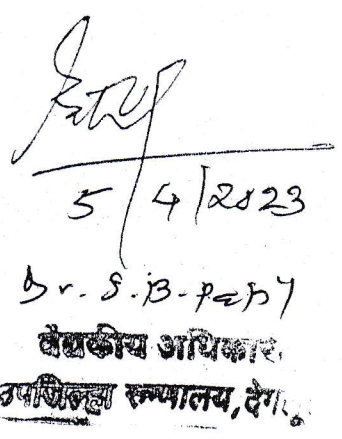 5/4/2023
Dr. S. B.
वैद्यकीय अधिकार
उपजिल्हा रुग्णालय, देग